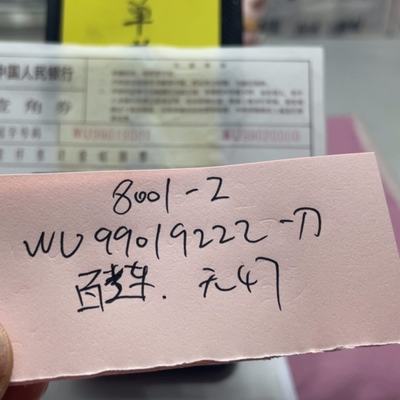 单
中国人民银行
壹角券
冠字号码 WU99010001 WU99020000
8001-2
WU99019222一刀
百连. 无47